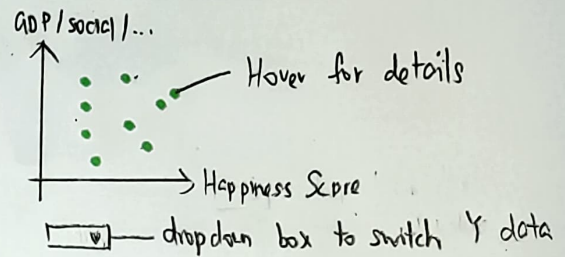 GDP/social/...
Hover for details
Happiness Score
dropdown box to switch Y data